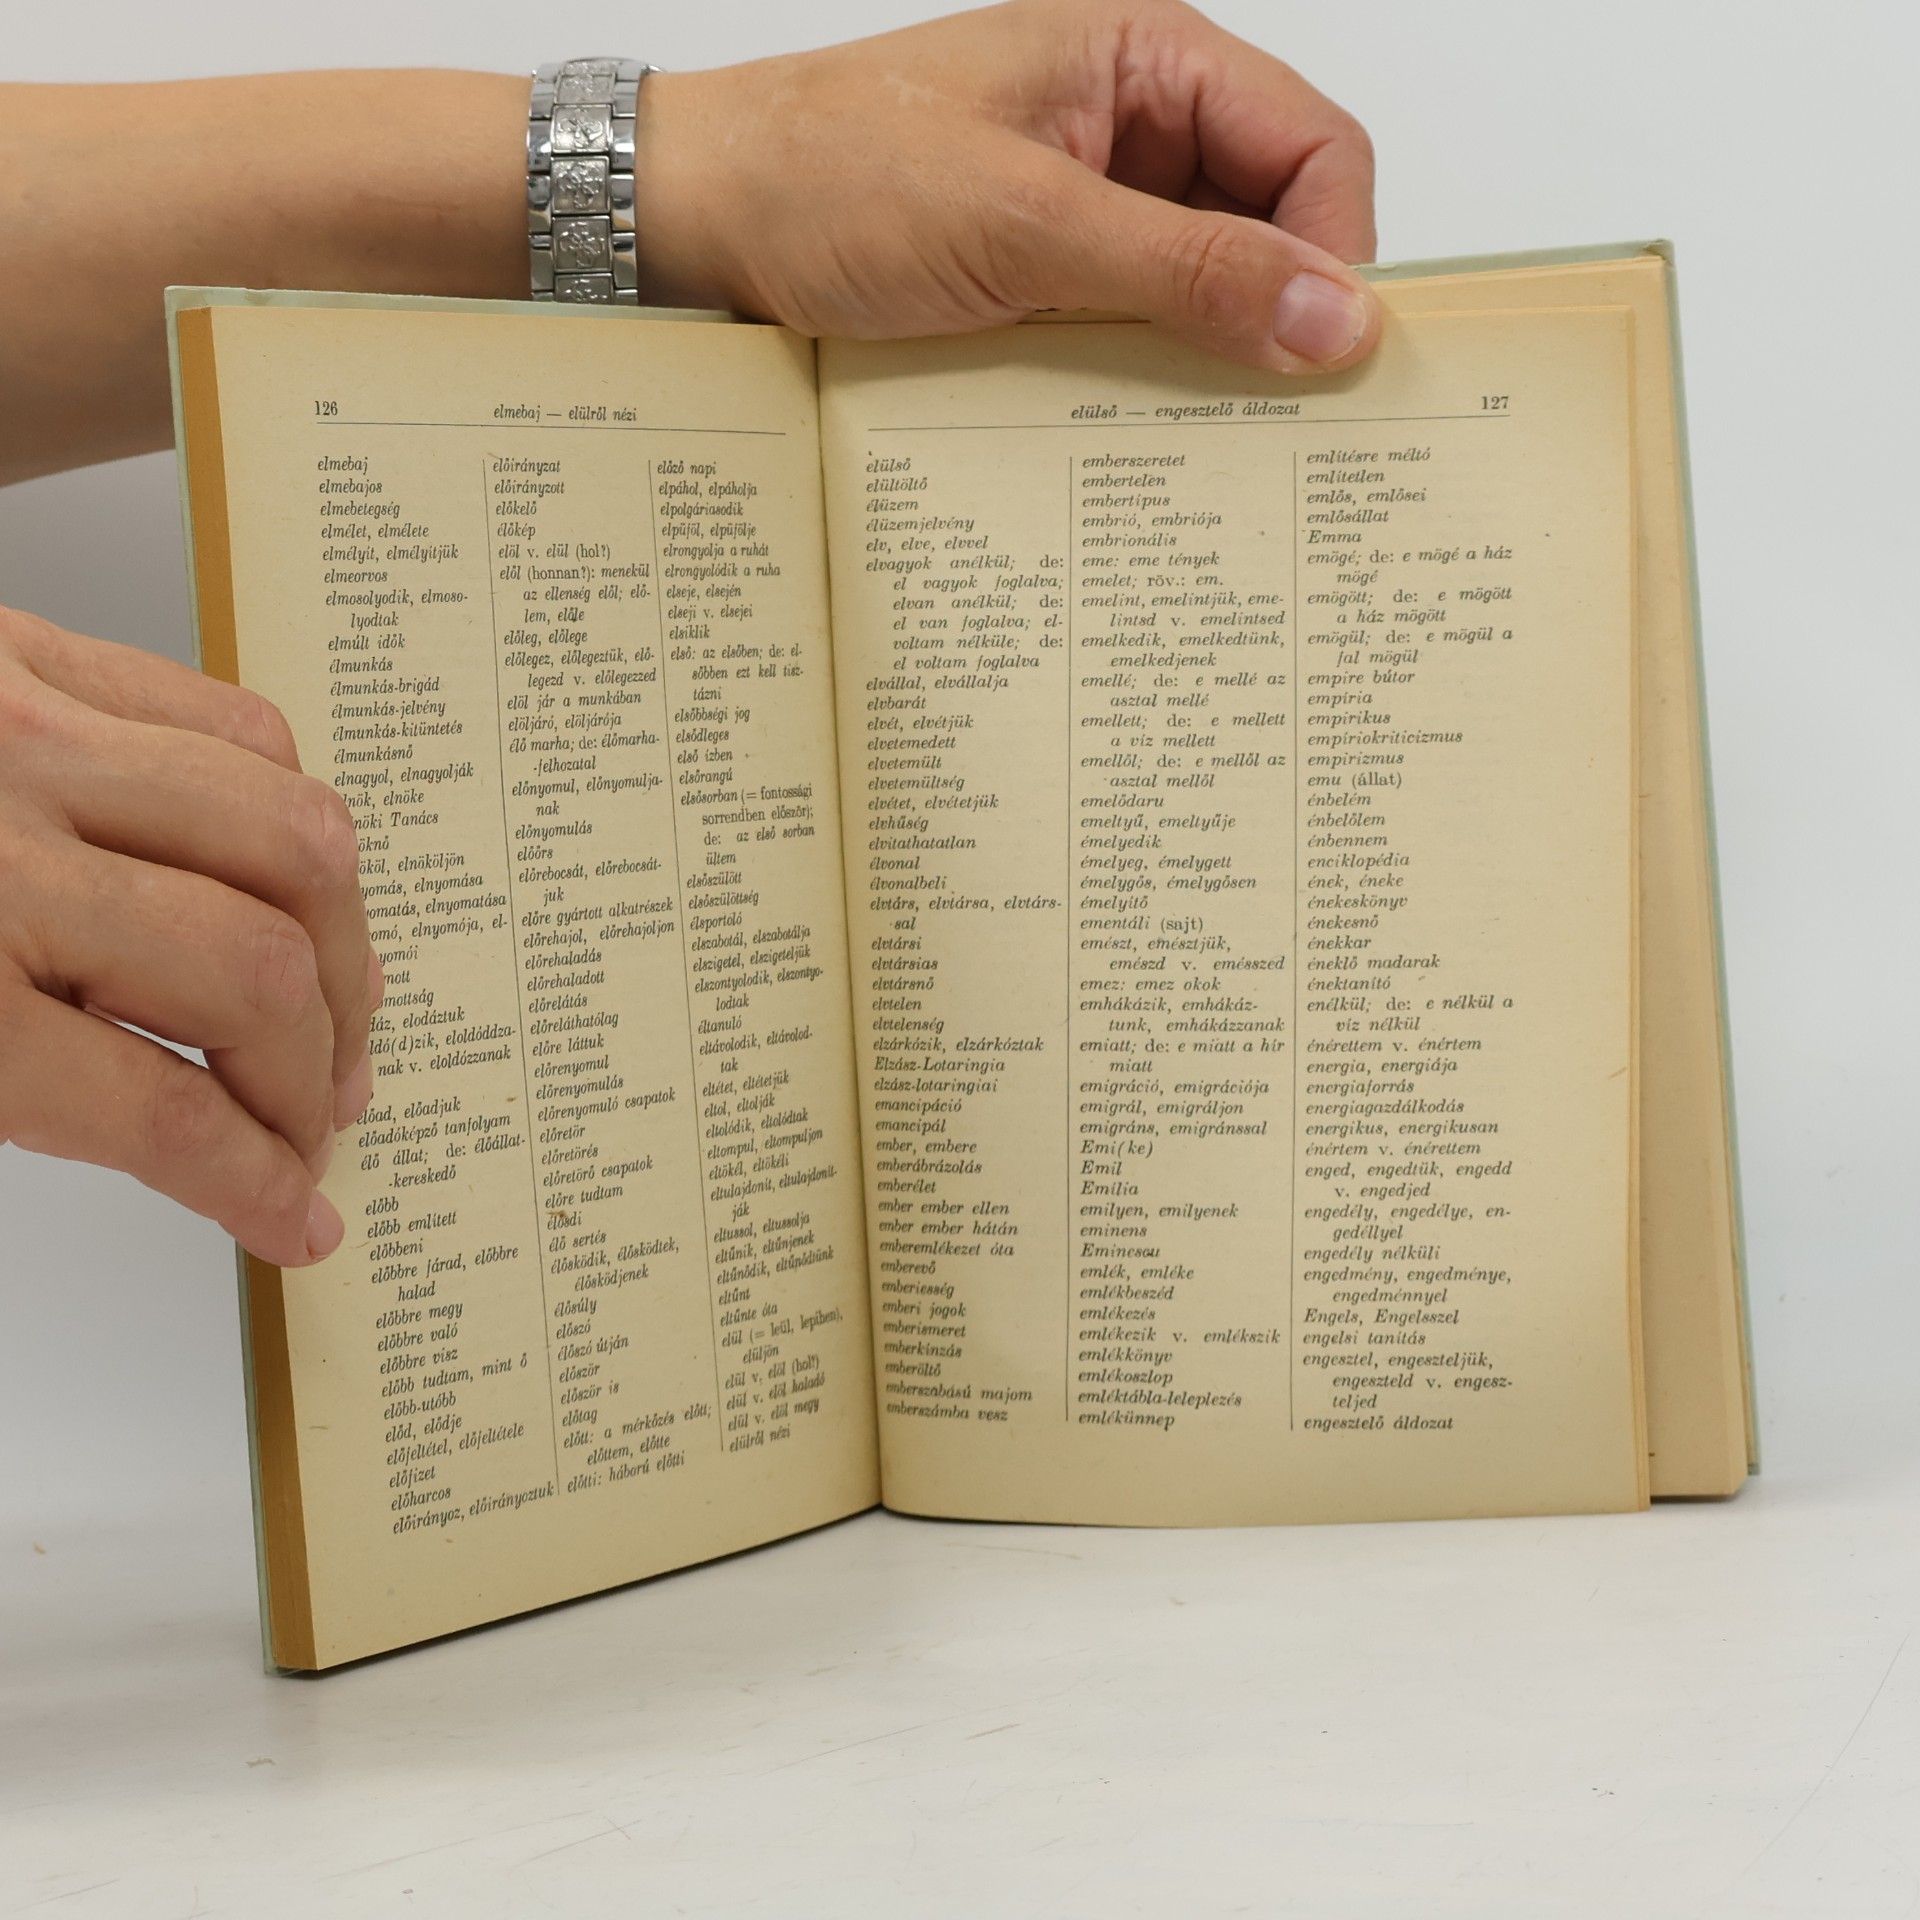 126
elmebaj — elülről nézi
elmebaj
elmebajos
elmebetegség
elmélet, elmélete
elmélyít, elmélyítjük
elmeorvos
elmosolyodik, elmoso-
lyodtak
elmúlt idők
élmunkás
élmunkás-brigád
élmunkás-jelvény
élmunkás-kitüntetés
élmunkásnő
elnagyol, elnagyolják
lnök, elnöke
nöki Tanács
öknő
ököl, elnököljön
yomás, elnyomása
omatás, elnyomatása
omó, elnyomója, el-
yomói
mott
mottság
dáz, elodáztuk
ldó(d)zik, eloldóddza-
nak v. eloldózzanak
előad, előadjuk
előadóképző tanfolyam
élő állat; de: élőállat-
-kereskedő
előbb
előbb említett
előbbeni
előbbre fárad, előbbre
halad
előbbre megy
előbbre való
előbbre visz
előbb tudtam, mint ő
előbb-utóbb
előd, elődje
előfeltétel, előfeltétele
előfizet
előharcos
előirányoz, előirányoztuk
előirányzat
előirányzott
előkelő
élőkép
elöl v. elül (hol?)
elől (honnan?): menekül
az ellenség elől; elő-
lem, előle
előleg, előlege
előlegez, előlegeztük, elő-
legezd v. előlegezzed
elöl jár a munkában
elöljáró, elöljárója
élő marha; de: élőmarha-
-felhozatal
előnyomul, előnyomulja-
nak
előnyomulás
előőrs
előrebocsát, előrebocsát-
juk
előre gyártott alkatrészek
előrehajol, előrehajoljon
előrehaladás
előrehaladott
előrelátás
előreláthatólag
előre láttuk
előrenyomul
előrenyomulás
előrenyomuló csapatok
előretör
előretörés
előretörő csapatok
előre tudtam
élősdi
élő sertés
élősködik, élősködtek,
élősködjenek
élősúly
előszó
élőszó útján
először
először is
előtag
előtt: a mérkőzés előtt;
előttem, előtte
előtti: háború előtti
előző napi
elpáhol, elpáholja
elpolgáriasodik
elpüföl, elpüfölje
elrongyolja a ruhát
elrongyolódik a ruha
elseje, elsején
elseji v. elsejei
elsiklik
első: az elsőben; de: el-
sőbben ezt kell tisz-
tázni
elsőbbségi jog
elsődleges
első ízben
elsőrangú
elsősorban (= fontossági
sorrendben először);
de: az első sorban
ültem
elsőszülött
elsőszülöttség
élsportoló
elszabotál, elszabotálja
elszigetel, elszigeteljük
elszontyolodik, elszontyo-
lodtak
éltanuló
eltávolodik, eltávolod-
tak
eltétet, eltétetjük
eltol, eltolják
eltolódik, eltolódtak
eltompul, eltompuljon
eltökél, eltökéli
eltulajdonít, eltulajdonít-
ják
eltussol, eltussolja
eltűnik, eltűnjenek
eltűnődik, eltűnődtünk
eltűnt
eltűnte óta
elül (= leül, lepihen),
elüljön
elül v. elöl (hol?)
elül v. elöl haladó
elül v. elöl megy
elülről nézi
elülső — engesztelő áldozat
127
elülső
elültöltő
élüzem
élüzemjelvény
elv, elve, elvvel
elvagyok anélkül; de:
el vagyok foglalva;
elvan anélkül; de:
el van foglalva; el-
voltam nélküle; de:
el voltam foglalva
elvállal, elvállalja
elvbarát
elvét, elvétjük
elvetemedett
elvetemült
elvetemültség
elvétet, elvétetjük
elvhűség
elvitathatatlan
élvonal
élvonalbeli
elvtárs, elvtársa, elvtárs-
sal
elvtársi
elvtársias
elvtársnő
elvtelen
elvtelenség
elzárkózik, elzárkóztak
Elzász-Lotaringia
elzász-lotaringiai
emancipáció
emancipál
ember, embere
emberábrázolás
emberélet
ember ember ellen
ember ember hátán
emberemlékezet óta
emberevő
emberiesség
emberi jogok
emberismeret
emberkínzás
emberöltő
emberszabású majom
emberszámba vesz
emberszeretet
embertelen
embertípus
embrió, embriója
embrionális
eme: eme tények
emelet; röv.: em.
emelint, emelintjük, eme-
lintsd v. emelintsed
emelkedik, emelkedtünk,
emelkedjenek
emellé; de: e mellé az
asztal mellé
emellett; de: e mellett
a víz mellett
emellől; de: e mellől az
asztal mellől
emelődaru
emeltyű, emeltyűje
émelyedik
émelyeg, émelygett
émelygős, émelygősen
émelyítő
ementáli (sajt)
emészt, emésztjük,
emészd v. emésszed
emez: emez okok
emhákázik, emhákáz-
tunk, emhákázzanak
emiatt; de: e miatt a hír
miatt
emigráció, emigrációja
emigrál, emigráljon
emigráns, emigránssal
Emi(ke)
Emil
Emília
emilyen, emilyenek
eminens
Emincsou
emlék, emléke
emlékbeszéd
emlékezés
emlékezik v. emlékszik
emlékkönyv
emlékoszlop
emléktábla-leleplezés
emlékünnep
említésre méltó
említetlen
emlős, emlősei
emlősállat
Emma
emögé; de: e mögé a ház
mögé
emögött; de: e mögött
a ház mögött
emögül; de: e mögül a
fal mögül
empire bútor
empíria
empirikus
empíriokriticizmus
empirizmus
emu (állat)
énbelém
énbelőlem
énbennem
enciklopédia
ének, éneke
énekeskönyv
énekesnő
énekkar
éneklő madarak
énektanító
enélkül; de: e nélkül a
víz nélkül
énérettem v. énértem
energia, energiája
energiaforrás
energiagazdálkodás
energikus, energikusan
énértem v. énérettem
enged, engedtük, engedd
v. engedjed
engedély, engedélye, en-
gedéllyel
engedély nélküli
engedmény, engedménye,
engedménnyel
Engels, Engelsszel
engelsi tanítás
engesztel, engeszteljük,
engeszteld v. engesz-
teljed
engesztelő áldozat